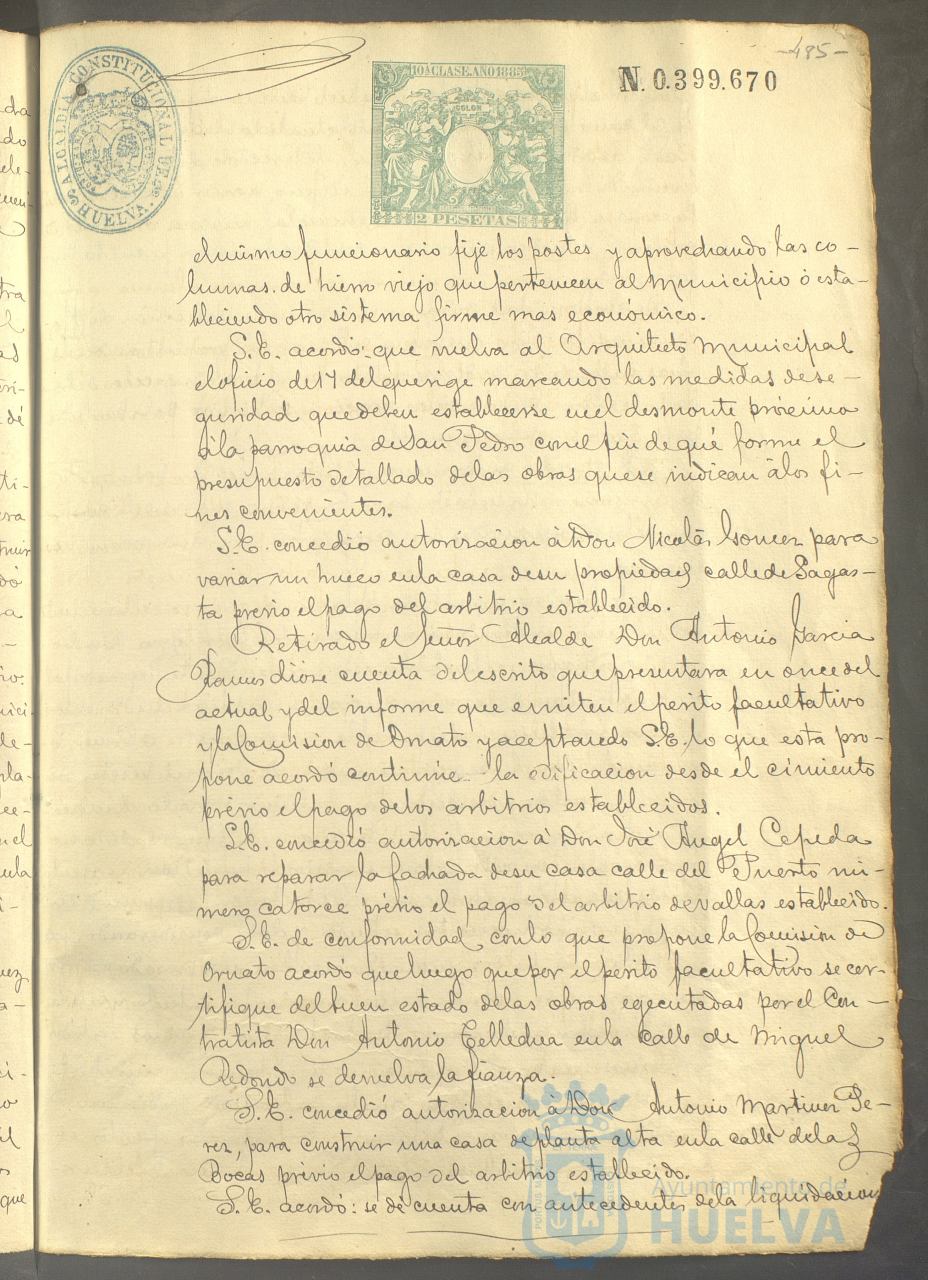 -485-
ALCALDIA CONSTITUCIONAL DE HUELVA.
10ª CLASE. AÑO 1885
COLON
2 PESETAS
N. 0.399.670
el mismo funcionario fije los postes y aprovechando las co-
lumnas de hierro viejo que pertenecen al Municipio ó esta-
bleciendo otro sistema firme mas económico.
S.E. acordó: que vuelva al Arquitecto Municipal
el oficio de 17 del que rige marcando las medidas de se-
guridad que deben establecerse en el desmonte próximo
á la parroquia de San Pedro con el fin de que forme el
presupuesto detallado de las obras que se indican á los fi-
nes convenientes.
S.E. concedió autorizacion á Don Nicolás Gomez para
variar un hueco en la casa de su propiedad calle de Sagas-
ta prévio el pago del arbitrio establecido.
Retirado el Señor Alcalde Don Antonio Garcia
Ramos dióse cuenta del escrito que presentara en once del
actual y del informe que emiten el perito facultativo
y la Comision de Ornato y aceptando S.E. lo que esta pro-
pone acordó continúe la edificacion desde el cimiento
prévio el pago de los arbitrios establecidos.
S.E. concedió autorizacion á Don José Angel Cepeda
para reparar la fachada de su casa calle del Puerto nú-
mero catorce prévio el pago del arbitrio de vallas establecido.
S.E. de conformidad con lo que propone la Comision de
Ornato acordó que luego que por el perito facultativo se cer-
tifique del buen estado de las obras egecutadas por el Con-
tratista Don Antonio Tellechea en la calle de Miguel
Redondo se devuelva la fianza.
S.E. concedió autorizacion á Don Antonio Martinez Pe-
rez, para construir una casa de planta alta en la calle de las
Bocas prévio el pago del arbitrio establecido.
S.E. acordó: se dé cuenta con antecedentes de la liquidacion
Ayuntamiento de
HUELVA